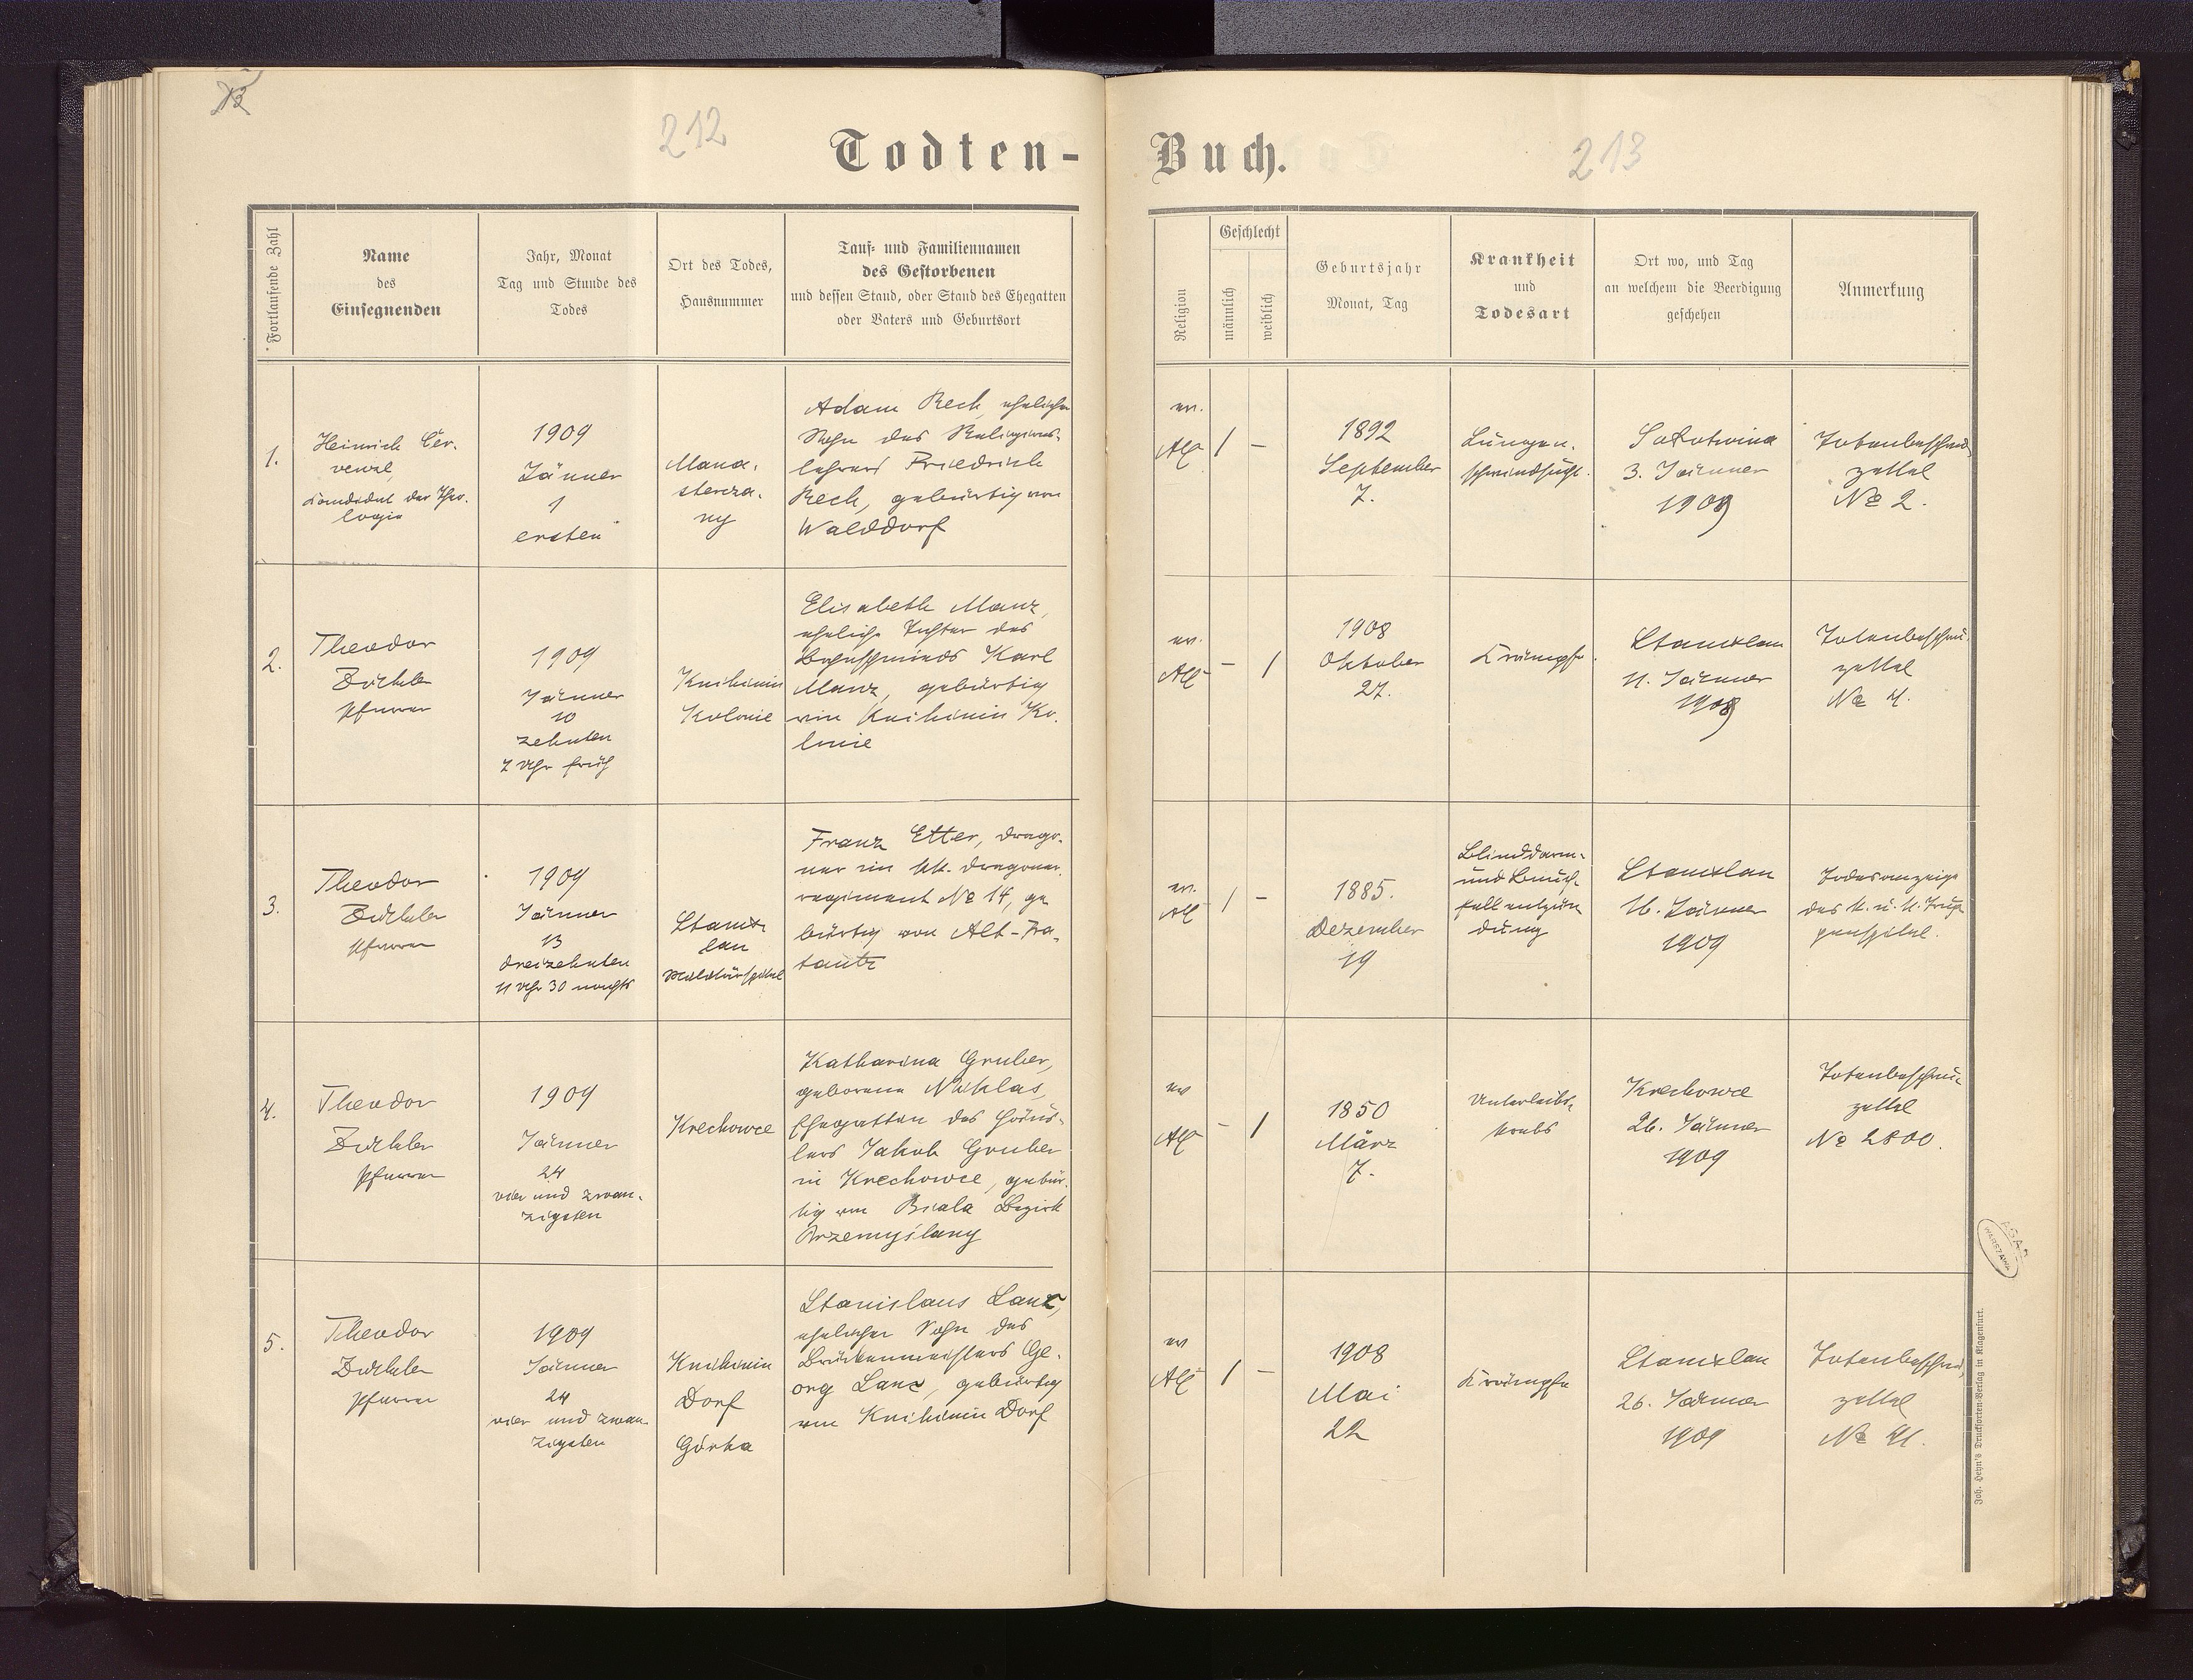 212
Todten-
Buch.
213
Fortlaufende Zahl
Name
des
Einsegnenden
Jahr, Monat
Tag und Stunde des
Todes
Ort des Todes,
Hausnummer
Tauf- und Familiennamen
des Gestorbenen
und dessen Stand, oder Stand des Ehegatten
oder Vaters und Geburtsort
Religion
Geschlecht
männlich
weiblich
Geburtsjahr
Monat, Tag
Krankheit
und
Todesart
Ort wo, und Tag
an welchem die Beerdigung
geschehen
Anmerkung
1.
Heinrich
Kandidat der Theo-
logie
1909
Jänner
1
ersten
Mona-
stercza-
ny
Adam Reck, ehelicher
Sohn des Religions-
lehrers Friedrich
Reck, gebürtig von
Walddorf
ev.
AC
1
–
1892
September
7.
Lungen-
schwindsucht.
Sołotwina
3. Jänner
1909
Totenbeschau
zettel
No 2.
2.
Theodor
Zöckler
Pfarrer
1909
Jänner
10
zehnten
7 Uhr früh
Knihinin
Kolonie
Elisabeth Manz,
eheliche Tochter des
Karl
Manz, gebürtig
von Knihinin Ko-
lonie
ev.
AC
–
1
1908
Oktober
27.
Krämpfe.
Stanislau
11. Jänner
1909
Totenbeschau-
zettel
No
3.
Theodor
Zöckler
Pfarrer
1909
Jänner
13
dreizehnten
11 Uhr 30 nachts
Stanis-
lau
Militärspital
Franz Etter, Drago-
ner im kk. Dragoner-
regiment No 14, ge-
bürtig von Alt-
ev.
AC
1
–
1885.
Dezember
19
Blinddarm-
und Bauch-
fellentzün-
dung
Stanislau
16. Jänner
1909
Todesanzeige
des k. u. k. Trup-
penspital.
4.
Theodor
Zöckler
Pfarrer
1909
Jänner
24
vier und zwan-
zigsten
Krechowce
Katharina Gruber,
geborene Niklas,
Ehegattin des Häus-
lers Jakob Gruber
in Krechowce, gebür-
tig von Biala Bezirk
Przemyślany
ev
AC
–
1
1850
März
7.
Unterleibs-
krebs
Krechowce
26. Jänner
1909
Totenbeschau-
zettel
No 2800.
5.
Theodor
Zöckler
Pfarrer
1909
Jänner
24
vier und zwan-
zigsten
Knihinin
Dorf
Górka
Stanislaus Lanz,
ehelicher Sohn des
Brückenmeisters Ge-
org Lanz, gebürtig
von Knihinin Dorf
ev
AC
1
–
1908
Mai
22
Krämpfe
Stanislau
26. Jänner
1909
Totenbeschau-
zettel
No
WARSZAWA
Joh. Heyn's Drucksorten-Verlag in Klagenfurt.